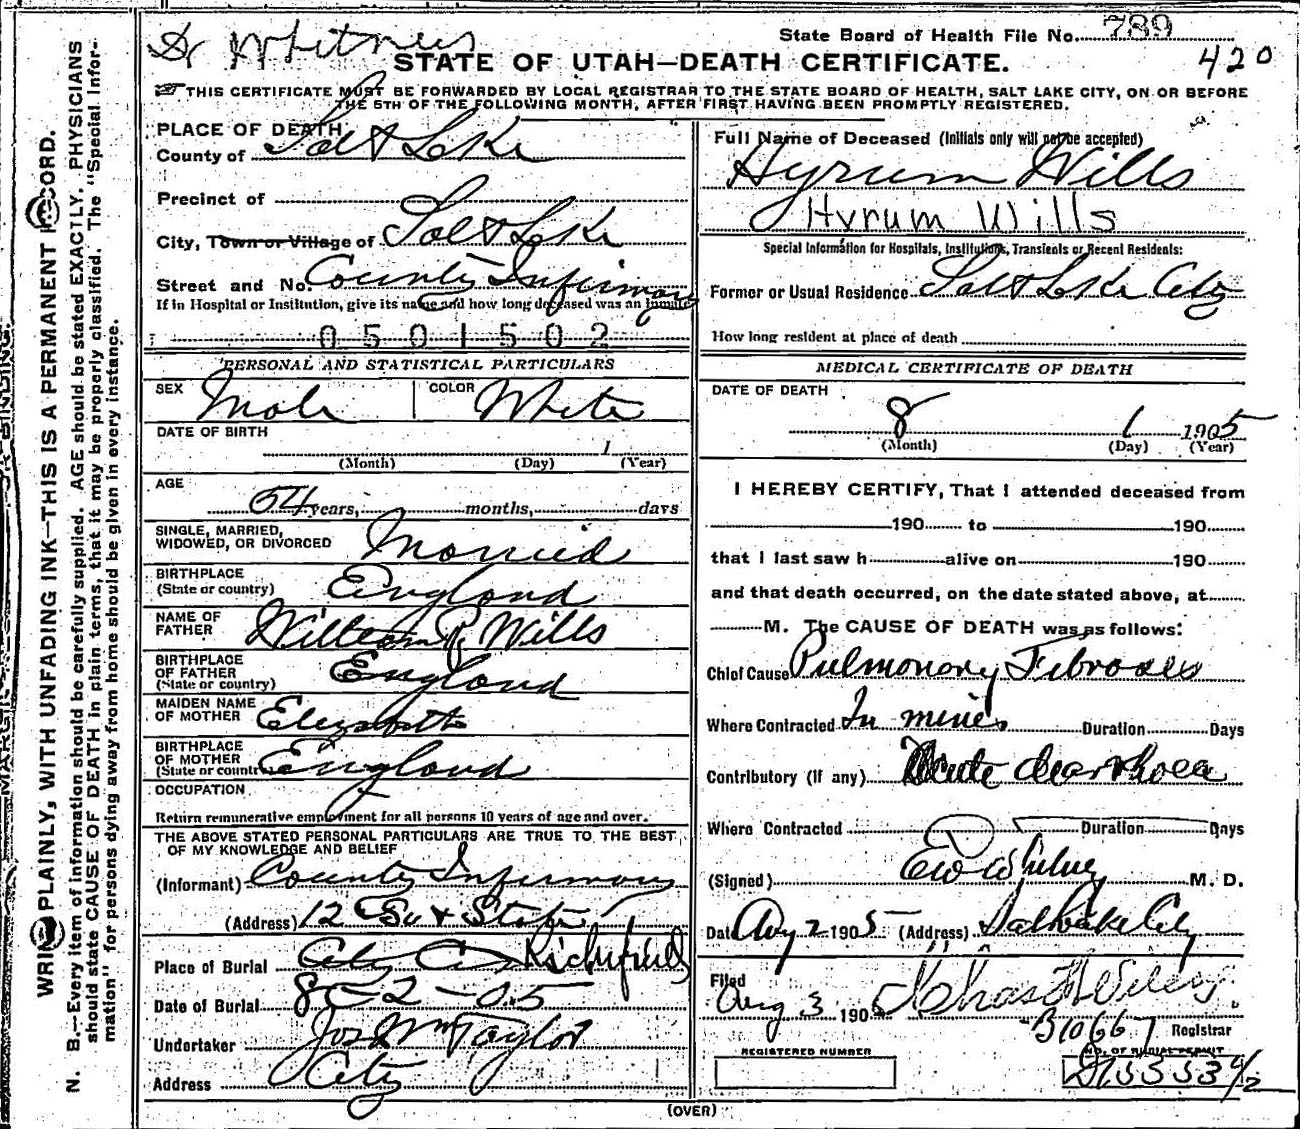 Dr Whitney
State Board of Health File No. 789
420
STATE OF UTAH—DEATH CERTIFICATE.
THIS CERTIFICATE MUST BE FORWARDED BY LOCAL REGISTRAR TO THE STATE BOARD OF HEALTH, SALT LAKE CITY, ON OR BEFORE
THE 5TH OF THE FOLLOWING MONTH, AFTER FIRST HAVING BEEN PROMPTLY REGISTERED.
WRITE PLAINLY, WITH UNFADING INK—THIS IS A PERMANENT RECORD.
N. B.—Every item of information should be carefully supplied. AGE should be stated EXACTLY. PHYSICIANS
should state CAUSE OF DEATH in plain terms, that it may be properly classified. The "Special Infor-
mation" for persons dying away from home should be given in every instance.
PLACE OF DEATH
County of Salt Lake
Precinct of
City, Town or Village of Salt Lake
Street and No. County Infirmary
If in Hospital or Institution, give its name and how long deceased was an inmate
0501502
PERSONAL AND STATISTICAL PARTICULARS
SEX Male COLOR White
DATE OF BIRTH
(Month) (Day) 1 (Year)
AGE
54 years, months, days
SINGLE, MARRIED,
WIDOWED, OR DIVORCED Married
BIRTHPLACE
(State or country) England
NAME OF
FATHER William R. Wills
BIRTHPLACE
OF FATHER
(State or country) England
MAIDEN NAME
OF MOTHER Elizabeth
BIRTHPLACE
OF MOTHER
(State or country) England
OCCUPATION
Return remunerative employment for all persons 10 years of age and over.
THE ABOVE STATED PERSONAL PARTICULARS ARE TRUE TO THE BEST
OF MY KNOWLEDGE AND BELIEF
(Informant) County Infirmary
(Address) 12 So & State
Place of Burial City Richfield
Date of Burial 8-2-05
Undertaker Jos Wm Taylor
Address City
Full Name of Deceased (Initials only will not be accepted)
Hyrum Wills
Hyrum Wills
Special Information for Hospitals, Institutions, Transients or Recent Residents:
Former or Usual Residence Salt Lake City
How long resident at place of death
MEDICAL CERTIFICATE OF DEATH
DATE OF DEATH
8 1 1905
(Month) (Day) (Year)
I HEREBY CERTIFY, That I attended deceased from
190 to 190
that I last saw h alive on 190
and that death occurred, on the date stated above, at
M. The CAUSE OF DEATH was as follows:
Chief Cause Pulmonary Fibroses
Where Contracted In mines Duration Days
Contributory (If any) Acute diarrhoea
Where Contracted Duration Days
(Signed) M. D.
Date Aug 2 1905 (Address) Salt Lake City
Filed
Aug 3 1905
Registrar
B1066
REGISTERED NUMBER NO. OF BURIAL PERMIT
(OVER)